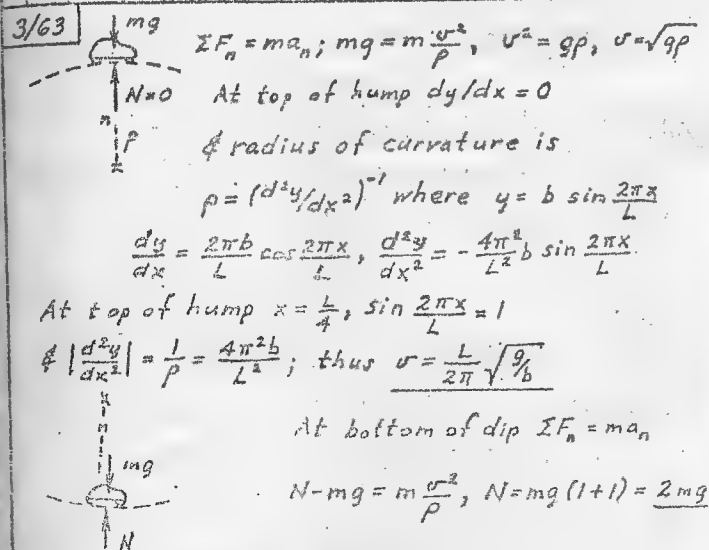 3/63
mg
ΣFₙ = maₙ; mg = m v²/ρ, v² = gρ, v = √gρ
N=0 At top of hump dy/dx = 0
n
ρ & radius of curvature is
ρ = (d²y/dx²)⁻¹ where y = b sin 2πx/L
dy/dx = 2πb/L cos 2πx/L, d²y/dx² = -4π²/L² b sin 2πx/L
At top of hump x = L/4, sin 2πx/L = 1
& |d²y/dx²| = 1/ρ = 4π²b/L²; thus v = L/2π √g/b
n At bottom of dip ΣFₙ = maₙ
mg
N-mg = m v²/ρ, N = mg (1+1) = 2mg
N